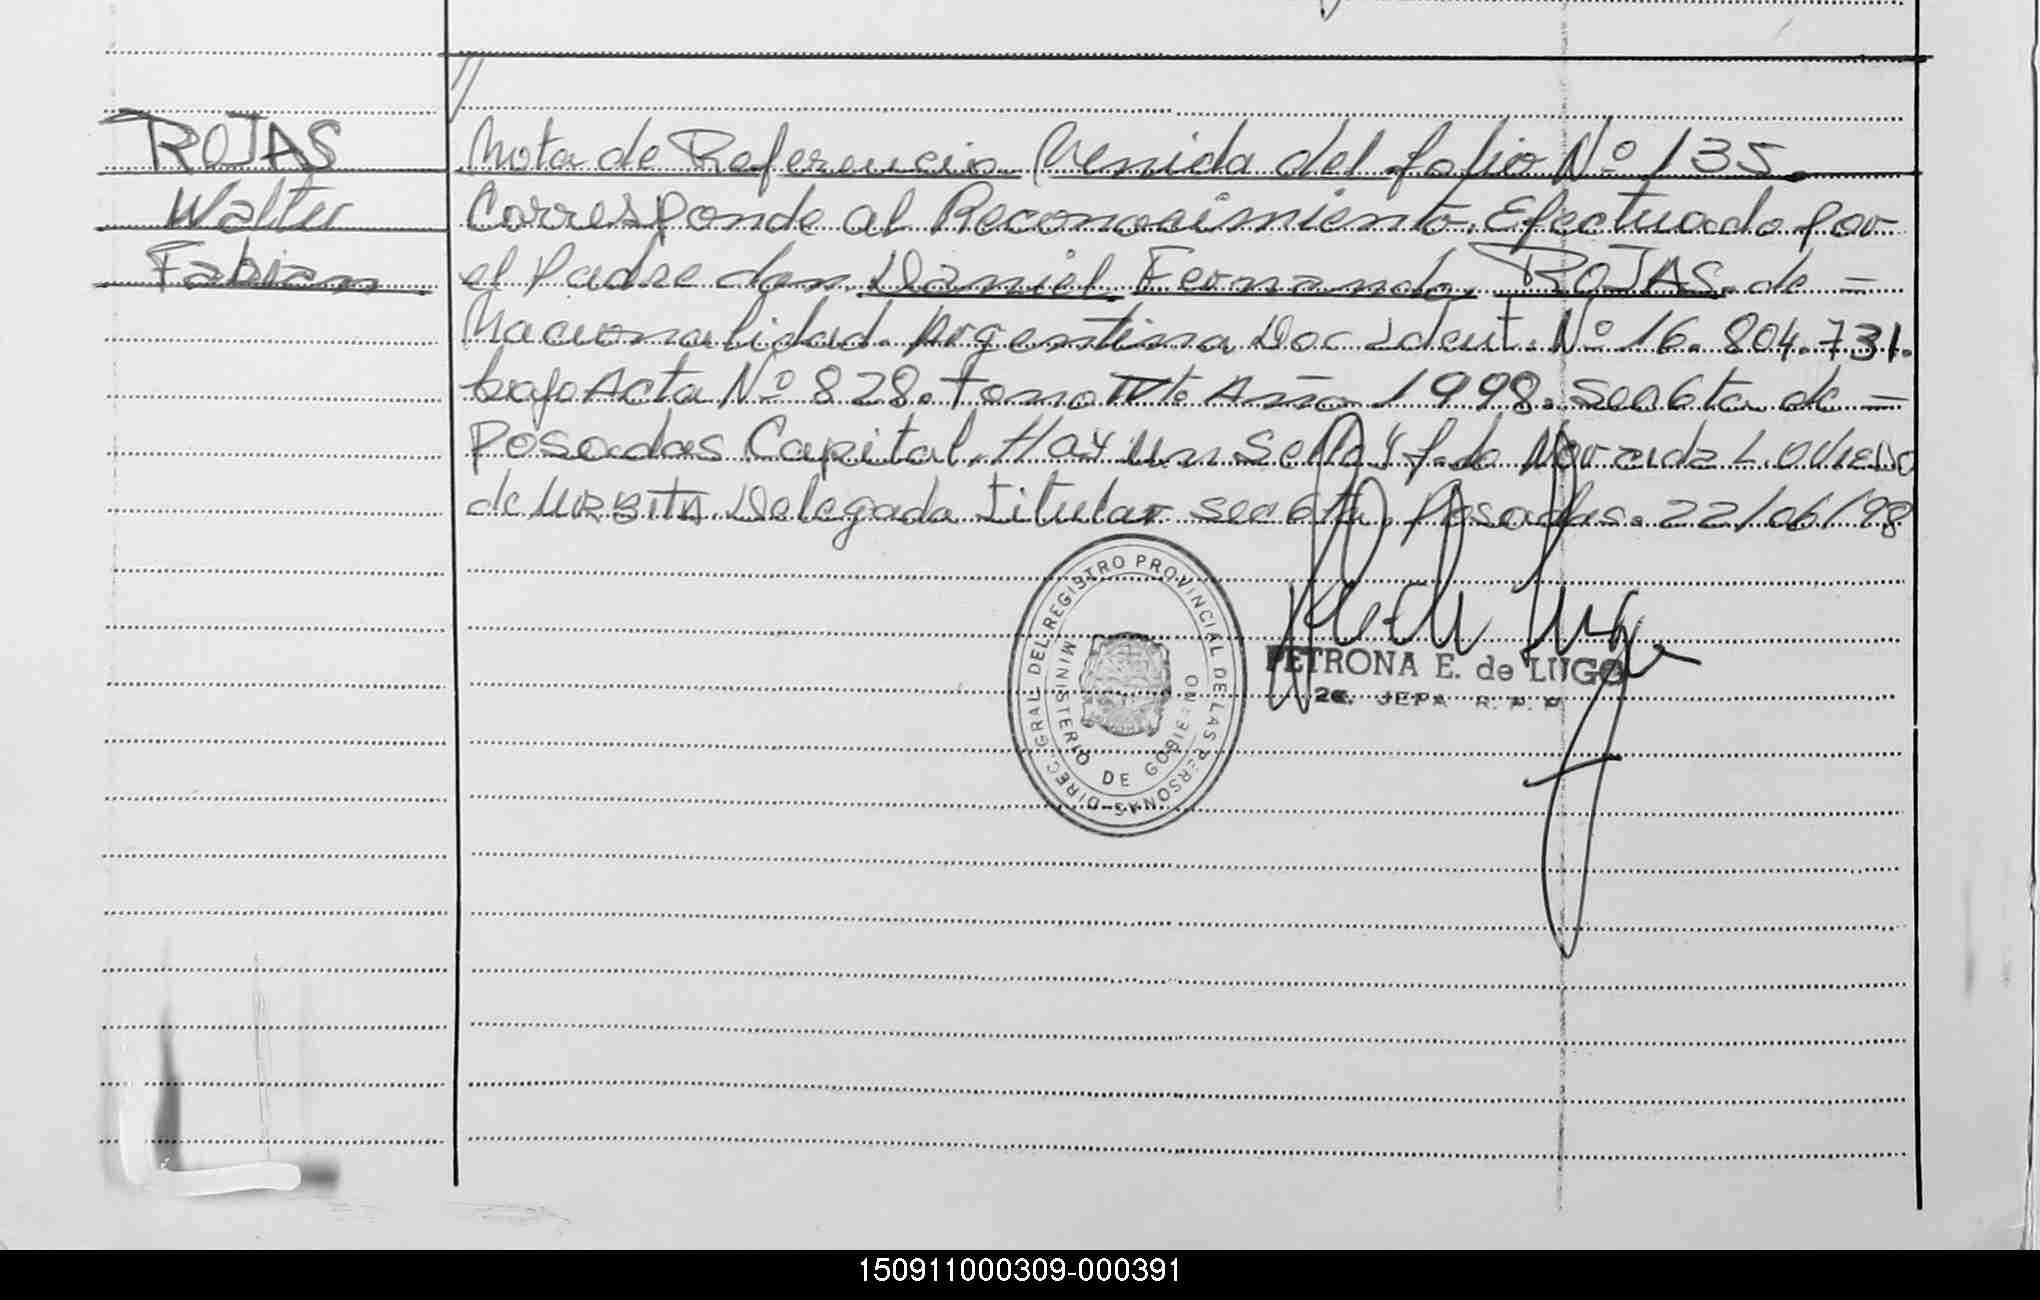 //
ROJAS
Walter
Fabian
Nota de Referencia Venida del folio Nº 135.
Corresponde al Reconocimiento. Efectuado por
el Padre don Daniel Fernando ROJAS. de =
Nacionalidad Argentina Doc Ident. Nº 16.804.731.
bajo Acta Nº 828. Tomo Año 1998. Sec 6ta de =
Posadas Capital. Hay un Sello y f.do L. Oviedo
de URBITA Delegada Titular Sec 6ta. Posadas. 22/06/98
DIREC. GRAL. DEL REGISTRO PROVINCIAL DE LAS PERSONAS
MINISTERIO DE GOBIERNO
PETRONA E. de LUGO
2a. JEFA R. P. P.
150911000309-000391